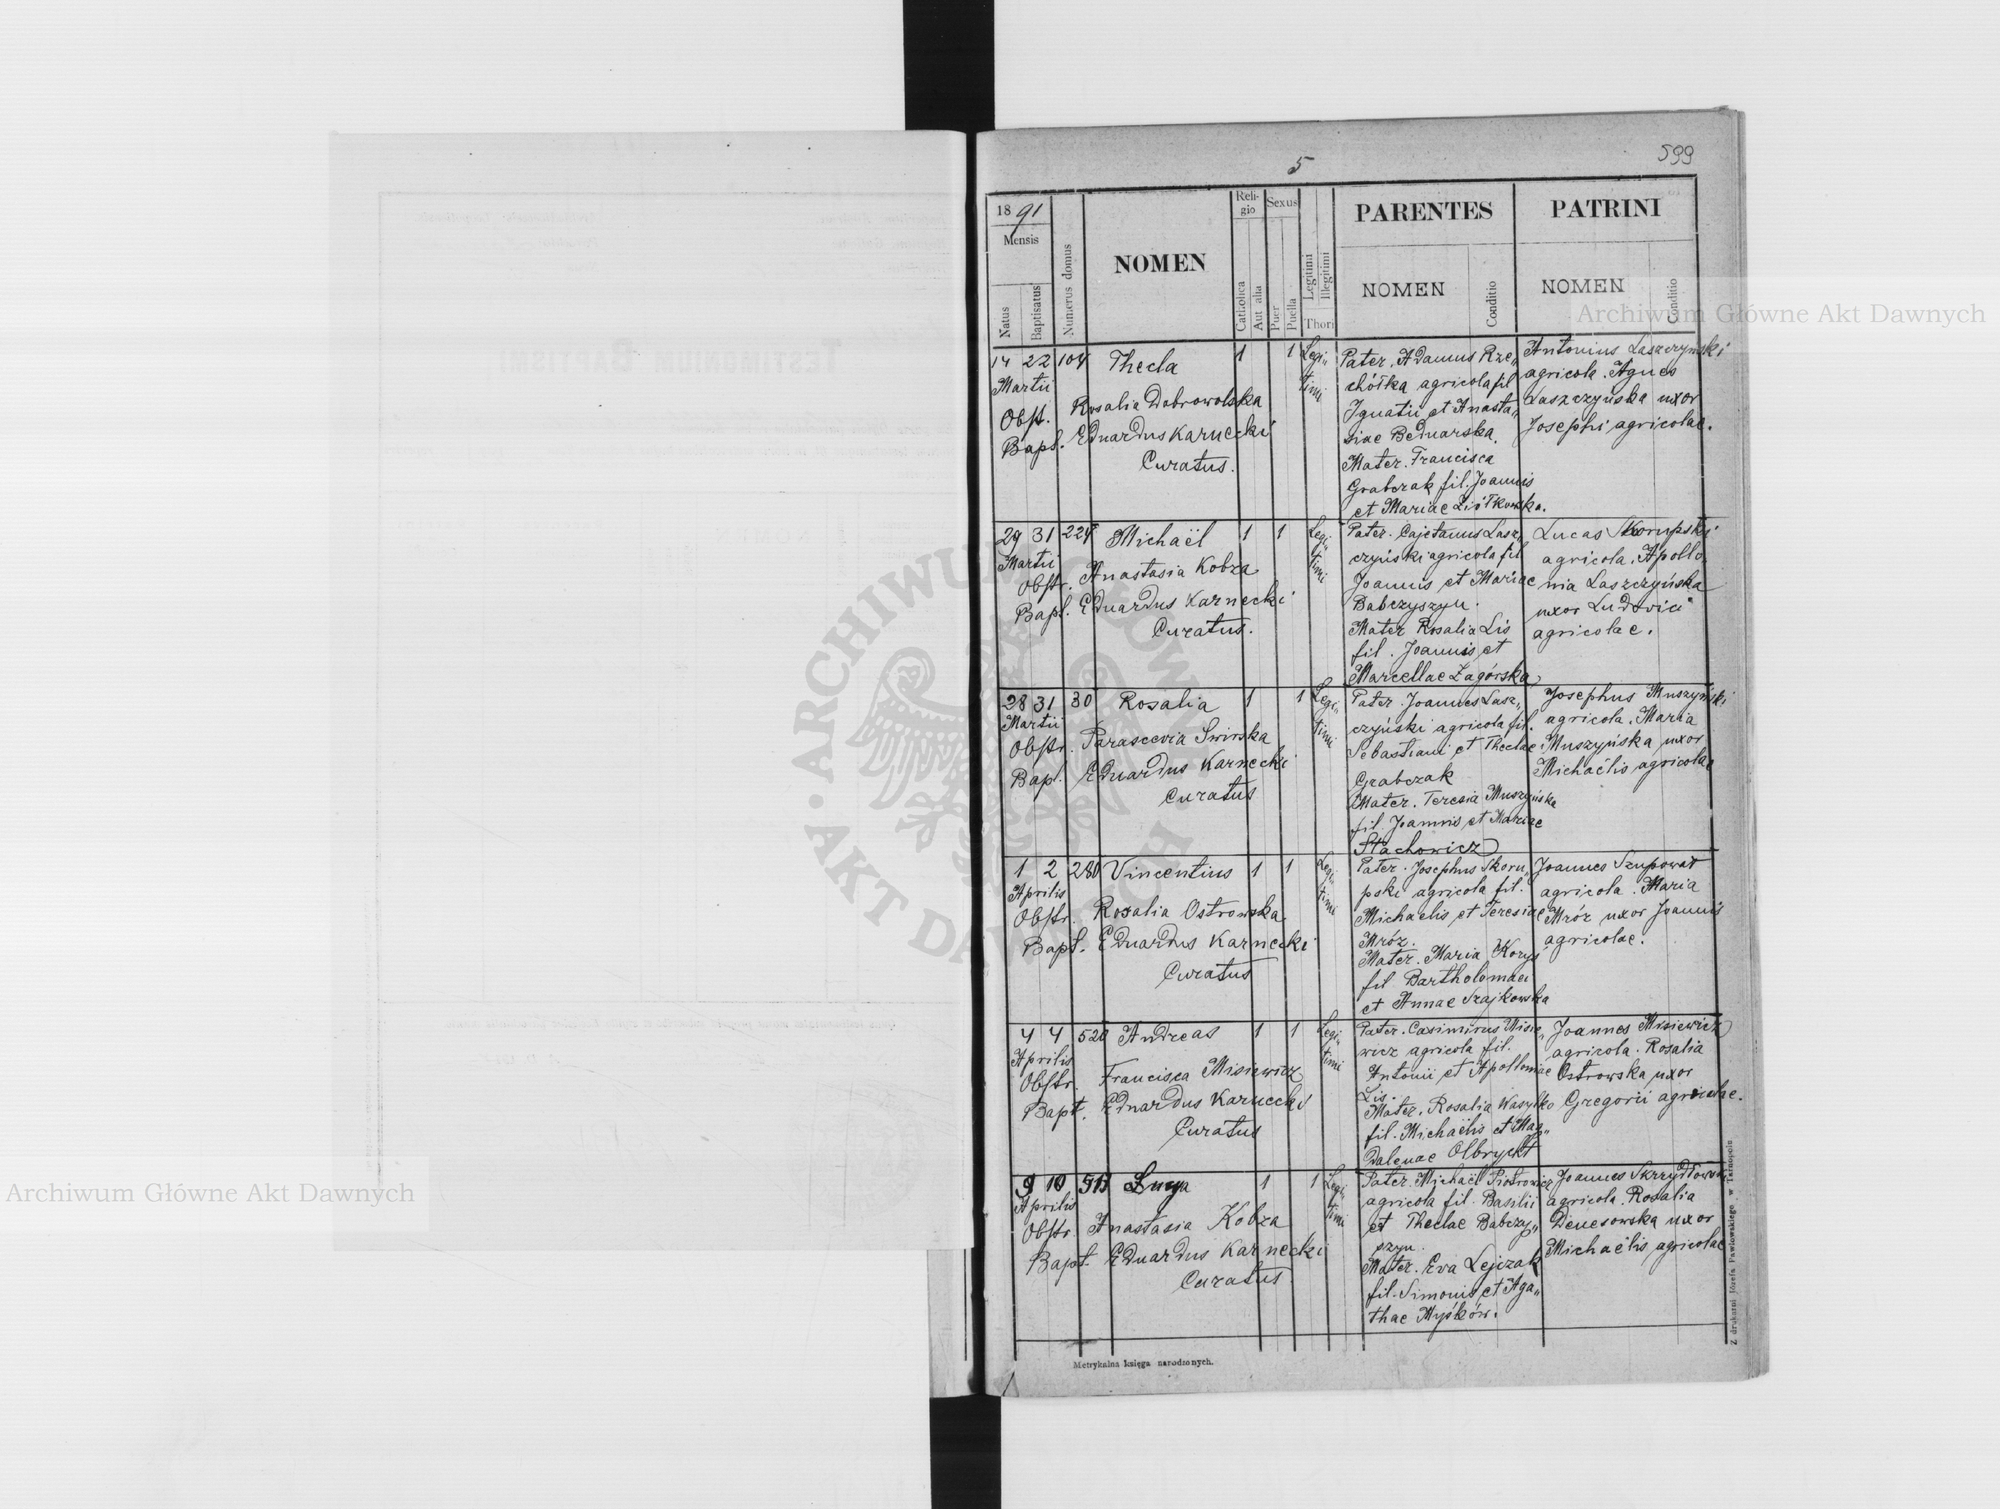 599
5
1891
Mensis
Natus
Baptisatus
Numerus domus
NOMEN
Religio
Catholica
Aut alia
Sexus
Puer
Puella
Legitimi
Illegitimi
Thori
PARENTES
NOMEN
Conditio
PATRINI
NOMEN
Conditio
14 22 104 Thecla 1 1 Legi„
timi
Martii
Obst. Rosalia Dobrowolska
Bapt. Eduardus Karnecki
Curatus.
Pater. Adamus Rze„
chółka agricola fil
Ignatii et Anasta„
siae Bednarska.
Mater. Francisca
Grabczak fil. Joannis
et Mariae Ziółkowska.
Antonius Laszczyński
agricola. Agnes
Laszczyńska uxor
Josephi agricolae.
29 31 224 Michaël 1 1 Legi„
timi
Martii
Obstr. Anastasia Kobza
Bapt. Eduardus Karnecki
Curatus.
Pater. Cajetanus Lasz„
czyński agricola fil
Joannis et Mariae
Babczyszyn.
Mater Rosalia Lis
fil. Joannis et
Marcellae Zagórska
Lucas Skorupski
agricola. Apollo„
nia Laszczyńska
uxor Ludovici
agricolae.
28 31 30 Rosalia 1 1 Legi„
timi
Martii
Obstr. Parascevia Swirska
Bapt. Eduardus Karnecki
Curatus
Pater. Joannes Lasz„
czyński agricola fil.
Sebastiani et Theclae
Grabczak
Mater. Teresia Muszyńska
fil. Joannis et Mariae
Stachowicz
Josephus Muszyński
agricola. Maria
Muszyńska uxor
Michaëlis agricolae
1 2 280 Vincentius 1 1 Legi„
timi
Aprilis
Obstr. Rosalia Ostrowska
Bapt. Eduardus Karnecki
Curatus
Pater. Josephus Skoru„
pski agricola fil.
Michaelis et Teresiae
Mróz.
Mater. Maria Koryś
fil Bartholomaei
et Annae Szajkowska
Joannes Szupowat
agricola. Maria
Mróz uxor Joannis
agricolae.
4 4 520 Andreas 1 1 Legi„
timi
Aprilis
Obstr. Francisca Misiewicz
Bapt. Eduardus Karnecki
Curatus
Pater. Casimirus Misie„
wicz agricola fil.
Antonii et Apolloniae
Lis.
Mater. Rosalia Wasylko
fil. Michaëlis et Mag„
dalenae Olbrycht
Joannes Misiewicz
agricola. Rosalia
Ostrowska uxor
Gregorii agricolae.
9 10 513 Lucya 1 1 Legi„
timi
Aprilis
Obstr. Anastasia Kobza
Bapt. Eduardus Karnecki
Curatus.
Pater. Michaël Piotrowicz
agricola fil. Basilii
et Theclae Babczy„
szyn.
Mater. Eva Lejczak
fil. Simonis et Aga„
thae Myśków.
Joannes
agricola. Rosalia
Denesowska uxor
Michaëlis agricolae
Metrykalna księga narodzonych.
Z drukarni Józefa Pawłowskiego w Tarnopolu.
Archiwum Główne Akt Dawnych
Archiwum Główne Akt Dawnych
ARCHIWUM GŁÓWNE AKT DAWNYCH
TESTIMONIUM BAPTISMI